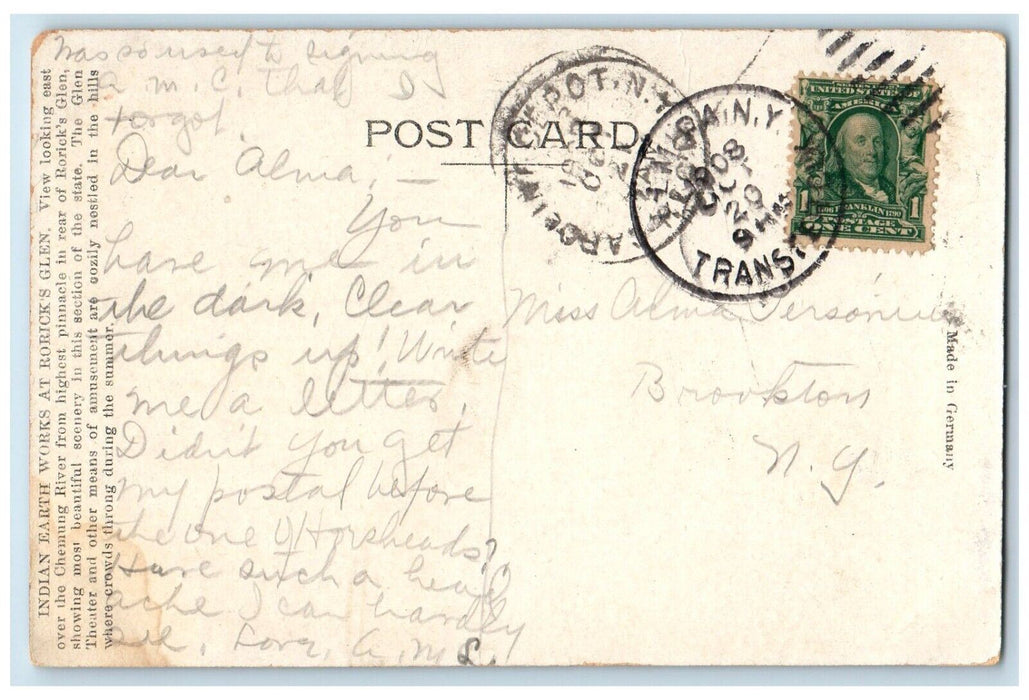 was so used to signing
A. M. C. that I
forgot.
POST CARD.
Dear Alma, —
You
have me in
the dark, Clear
things up! Write
me a letter.
Didn't you get
my postal before
the one of Horseheads?
Have such a head
ache I can hardly
see. Love, A. M. L.
Miss Alma
Brookton
N. Y.
INDIAN EARTH WORKS AT RORICK'S GLEN. View looking east
over the Chemung River from highest pinnacle in rear of Rorick's Glen,
showing most beautiful scenery in this section of the state. The Glen
Theater and other means of amusement are cozily nestled in the hills
where crowds throng during the summer.
DEPOT, N.Y.
N.Y.
OCT
20
TRANSIT
UNITED STATES OF
AMERICA
1 FRANKLIN 1790 1
POSTAGE
ONE CENT
Made in Germany